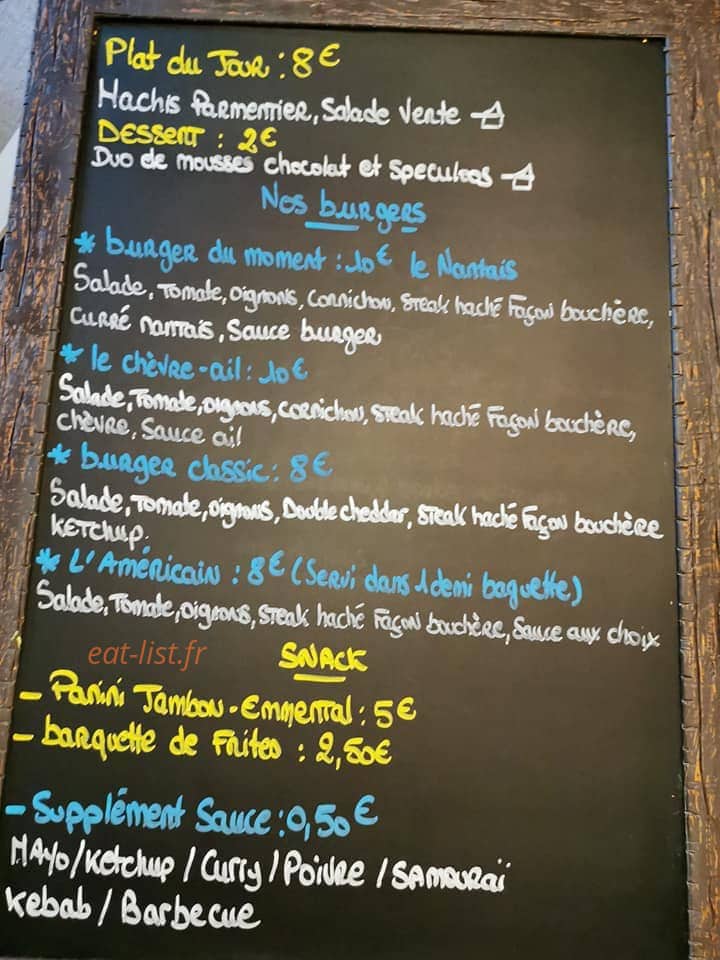 Plat du Jour : 8€
Hachis Parmentier, Salade Verte
Dessert : 2€
Duo de mousses chocolat et Speculoos
Nos burgers
* burger du moment : 10€ le Nantais
Salade, Tomate, oignons, Cornichon, Steak haché Façon bouchère,
curré nantais, Sauce burger
* le chèvre-ail : 10€
Salade, Tomate, oignons, cornichon, Steak haché Façon bouchère,
chèvre, Sauce ail
* burger classic : 8€
Salade, Tomate, oignons, Double cheddar, Steak haché Façon bouchère
KETCHUP.
* L'Américain : 8€ (Servi dans 1 demi baguette)
Salade, Tomate, oignons, Steak haché Façon bouchère, Sauce aux choix
eat-list.fr
SNACK
- Panini Jambon-Emmental : 5€
- barquette de Frites : 2,50€
- Supplément Sauce : 0,50€
Mayo/Ketchup / Curry / Poivre / SAMOURAÏ
Kebab / Barbecue